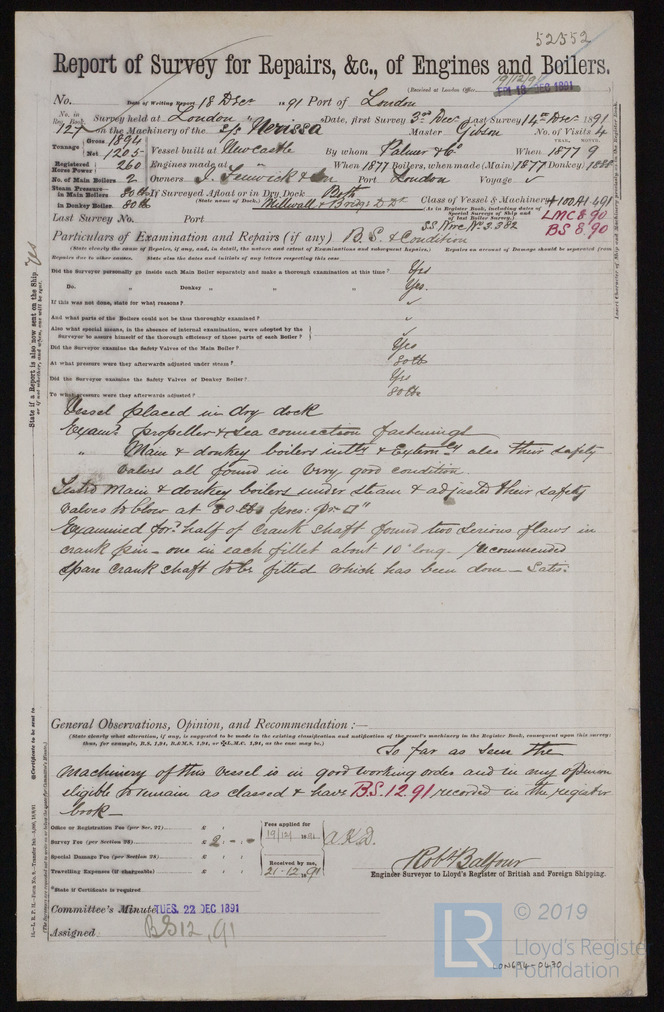 52552
Report of Survey for Repairs, &c., of Engines and Boilers.
(Received at London Office 19/12/91 FRI 18 DEC 1891
No. Date of Writing Report 18 Decr 1891 Port of London
No. in Reg. Book. Survey held at London Date, first Survey 3rd Decr Last Survey 14th Decr 1891
127 on the Machinery of the s/s Nerissa Master Gibson No. of Visits 4
Tonnage Gross 1894 Net 1205 Vessel built at Newcastle By whom Palmer & Co When 1877 9
Registered Horse Power 260 Engines made at " When 1877 Boilers, when made (Main) 1877 (Donkey) 1888
No. of Main Boilers 2 Owners J. Fenwick & Son Port London Voyage ✓
Steam Pressure— in Main Boilers 80 lbs If Surveyed Afloat or in Dry Dock Both Class of Vessel & Machinery +100A1 4,91
in Donkey Boiler 80 lbs (State name of Dock.) Millwall & Brigs D. Dk
(As in Register Book, including dates of Special Surveys of Ship and of last Boiler Survey.) LMC 8,90
Last Survey No. Port S.S. Nwc No. 2.3.82 BS 8,90
Particulars of Examination and Repairs (if any) B.S. & Condition
(State clearly the cause of Repairs, if any, and, in detail, the nature and extent of Examinations and subsequent Repairs). Repairs on account of Damage should be separated from
Repairs due to other causes. State also the dates and initials of any letters respecting this case
Did the Surveyor personally go inside each Main Boiler separately and make a thorough examination at this time? Yes
Do. " Donkey " " " " " Yes.
If this was not done, state for what reasons? ✓
And what parts of the Boilers could not be thus thoroughly examined? ✓
Also what special means, in the absence of internal examination, were adopted by the
Surveyor to assure himself of the thorough efficiency of those parts of each Boiler? ✓
Did the Surveyor examine the Safety Valves of the Main Boiler? Yes
At what pressure were they afterwards adjusted under steam? 80 lbs
Did the Surveyor examine the Safety Valves of Donkey Boiler? Yes
To what pressure were they afterwards adjusted? 80 lbs
Vessel placed in dry dock
Examd propeller & sea connection fastenings
" Main & donkey boilers intly & Externly also their safety
valves all found in very good condition.
Tested main & donkey boilers under steam & adjusted their safety
valves to blow at 80 lbs pres: Pr □"
Examined for? half of Crank Shaft found two serious flaws in
crank pin – one in each fillet about 10" long. Recommended
spare crank shaft to be fitted which has been done – Satis:
General Observations, Opinion, and Recommendation:—
(State clearly what alteration, if any, is suggested to be made in the existing classification and notification of the vessel's machinery in the Register Book, consequent upon this survey;
thus, for example, B.S. 1,91, B.&M.S. 1,91, or ✠L.M.C. 1,91, as the case may be.)
So far as seen the
machinery of this vessel is in good working order and in my opinion
eligible to remain as classed & have B.S. 12.91 recorded in the register
book –
Office or Registration Fee (per Sec. 27) £ : : Fees applied for
Survey Fee (per Section 28) £ 2 - - 19/12/1891 A.K.D.
Special Damage Fee (per Section 28) £ : : Received by me,
Travelling Expenses (if chargeable) £ : : 21-12-1891
Robt Balfour
Engineer Surveyor to Lloyd's Register of British and Foreign Shipping.
*State if Certificate is required
Committee's Minute TUES. 22 DEC 1891
Assigned BS 12,91
State if a Report is also now sent on the Ship. Yes
or if not whether, and when, one will be sent.
Certificate to be sent to
LR
© 2019
Lloyd's Register
Foundation
LON694-0470